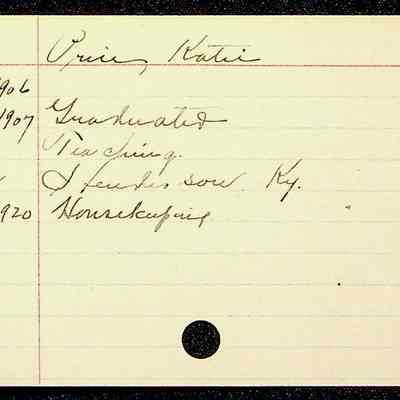 Price, Katie
906
1907 Graduated
Teaching.
Henderson Ky.
920 Housekeeping